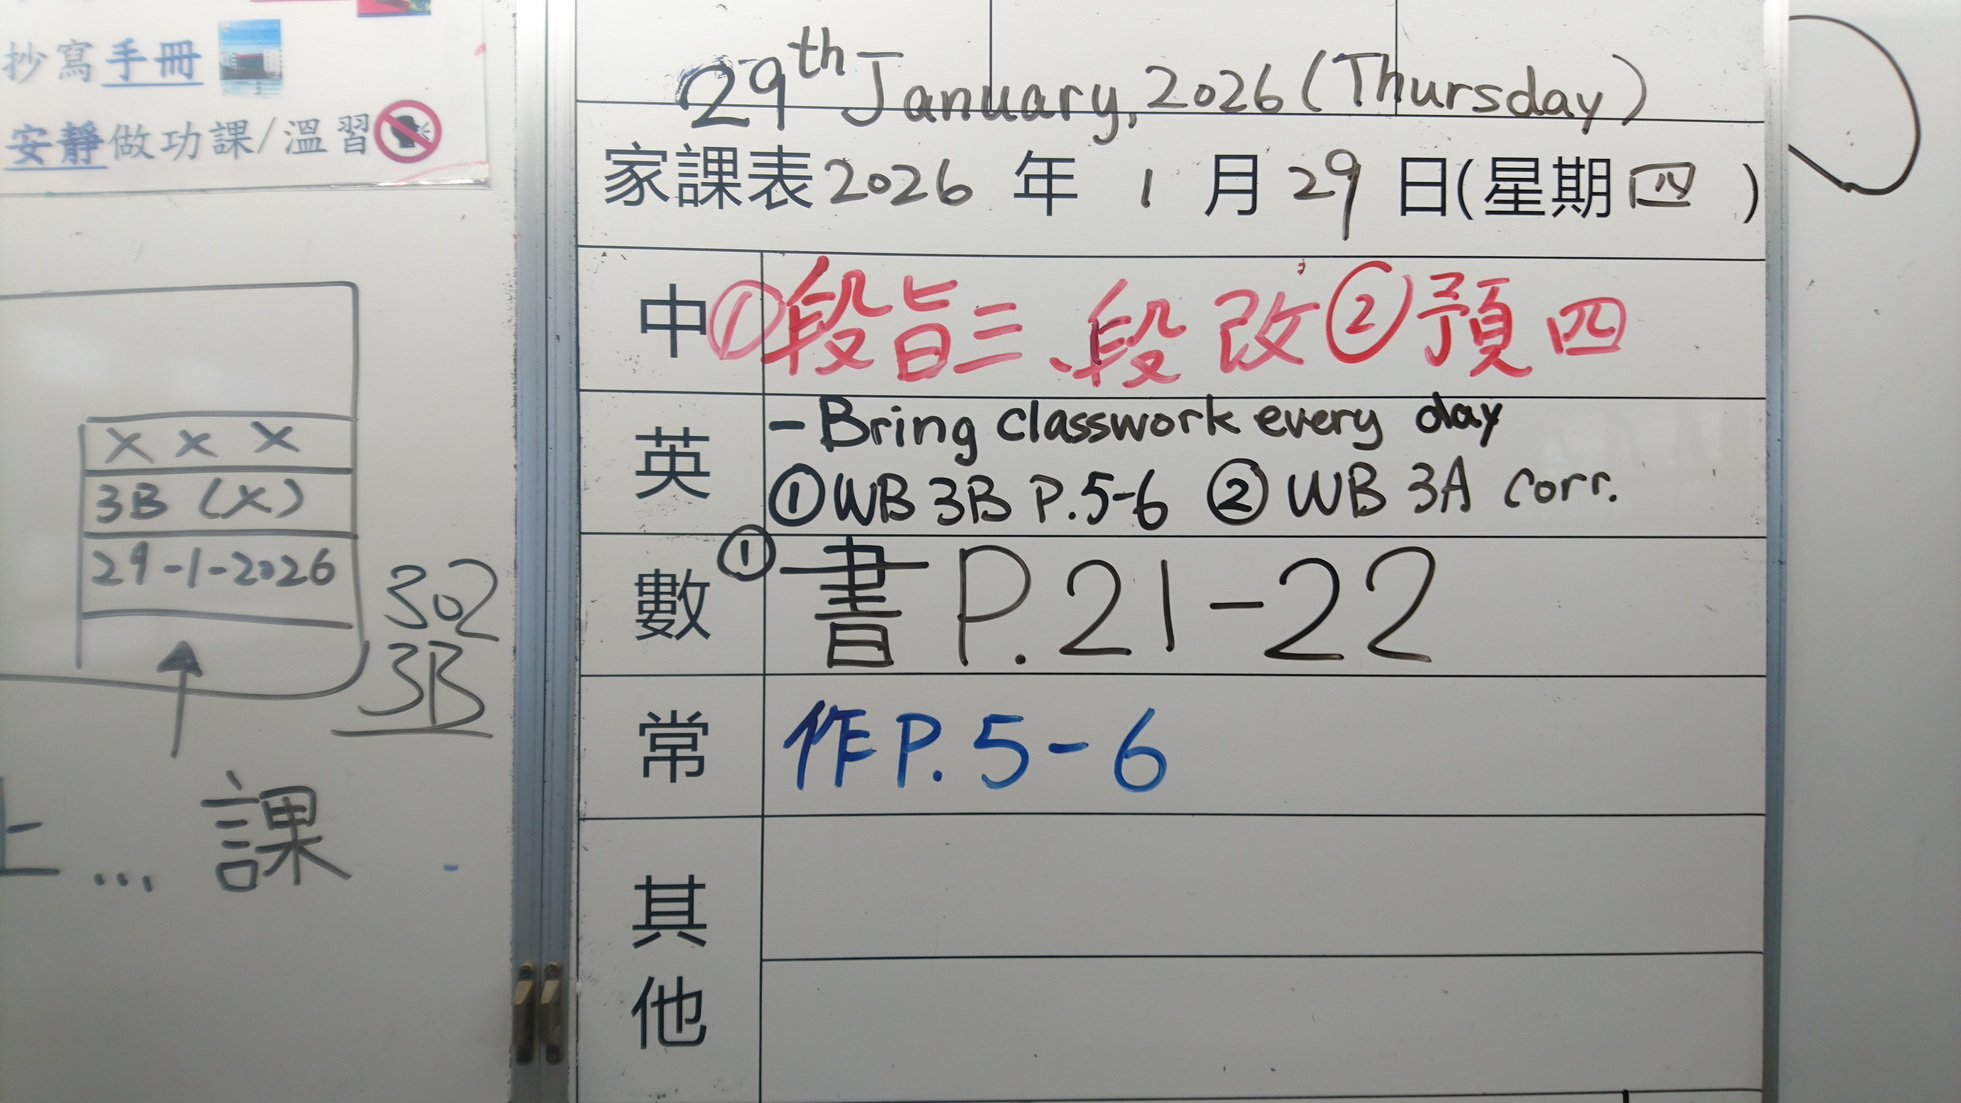 抄寫手冊
安靜做功課/溫習
X X X
3B (X)
29-1-2026
302
3B
上... 課
29th January, 2026 (Thursday)
家課表2026 年 1 月 29 日(星期四)
中 ①段旨三、段改②預四
英 - Bring classwork every day
①WB 3B P.5-6 ② WB 3A corr.
數 ①書 P.21-22
常 作P.5-6
其他